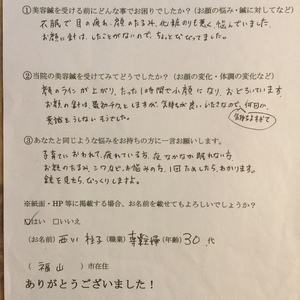 ①美容鍼を受ける前にどんな事でお困りでしたか？（お顔の悩み・鍼に対してなど）
衣服で 目の疲れ、顔のたるみ、化粧のりも悪く、悩んでいました。
お顔に針は、したことがないので、ちょっとびびってました。
②当院の美容鍼を受けてみてどうでしたか？（お顔の変化・体調の変化など）
顔のラインが上がり、たった1時間で小顔になり、おどろいています
お顔の針は、最初チクとしますが、気持ちが良いいたさなので、何回か
意識をうしないそうでした。
気持ちよすぎて
③あなたと同じような悩みをお持ちの方に一言お願いします。
子育てにおわれて、疲れている方、夜なかなか眠れない方、
お顔のたるみ、シワなど、お悩みの方、1回ためしたら、わかります。
鏡を見たら、びっくりしますよ。
※紙面・HP等に掲載する場合、お名前を載せてもよろしいでしょうか？
☑はい □いいえ
（お名前）西川 桂子（職業）専業主婦（年齢）30代
（福山）市在住
ありがとうございました！